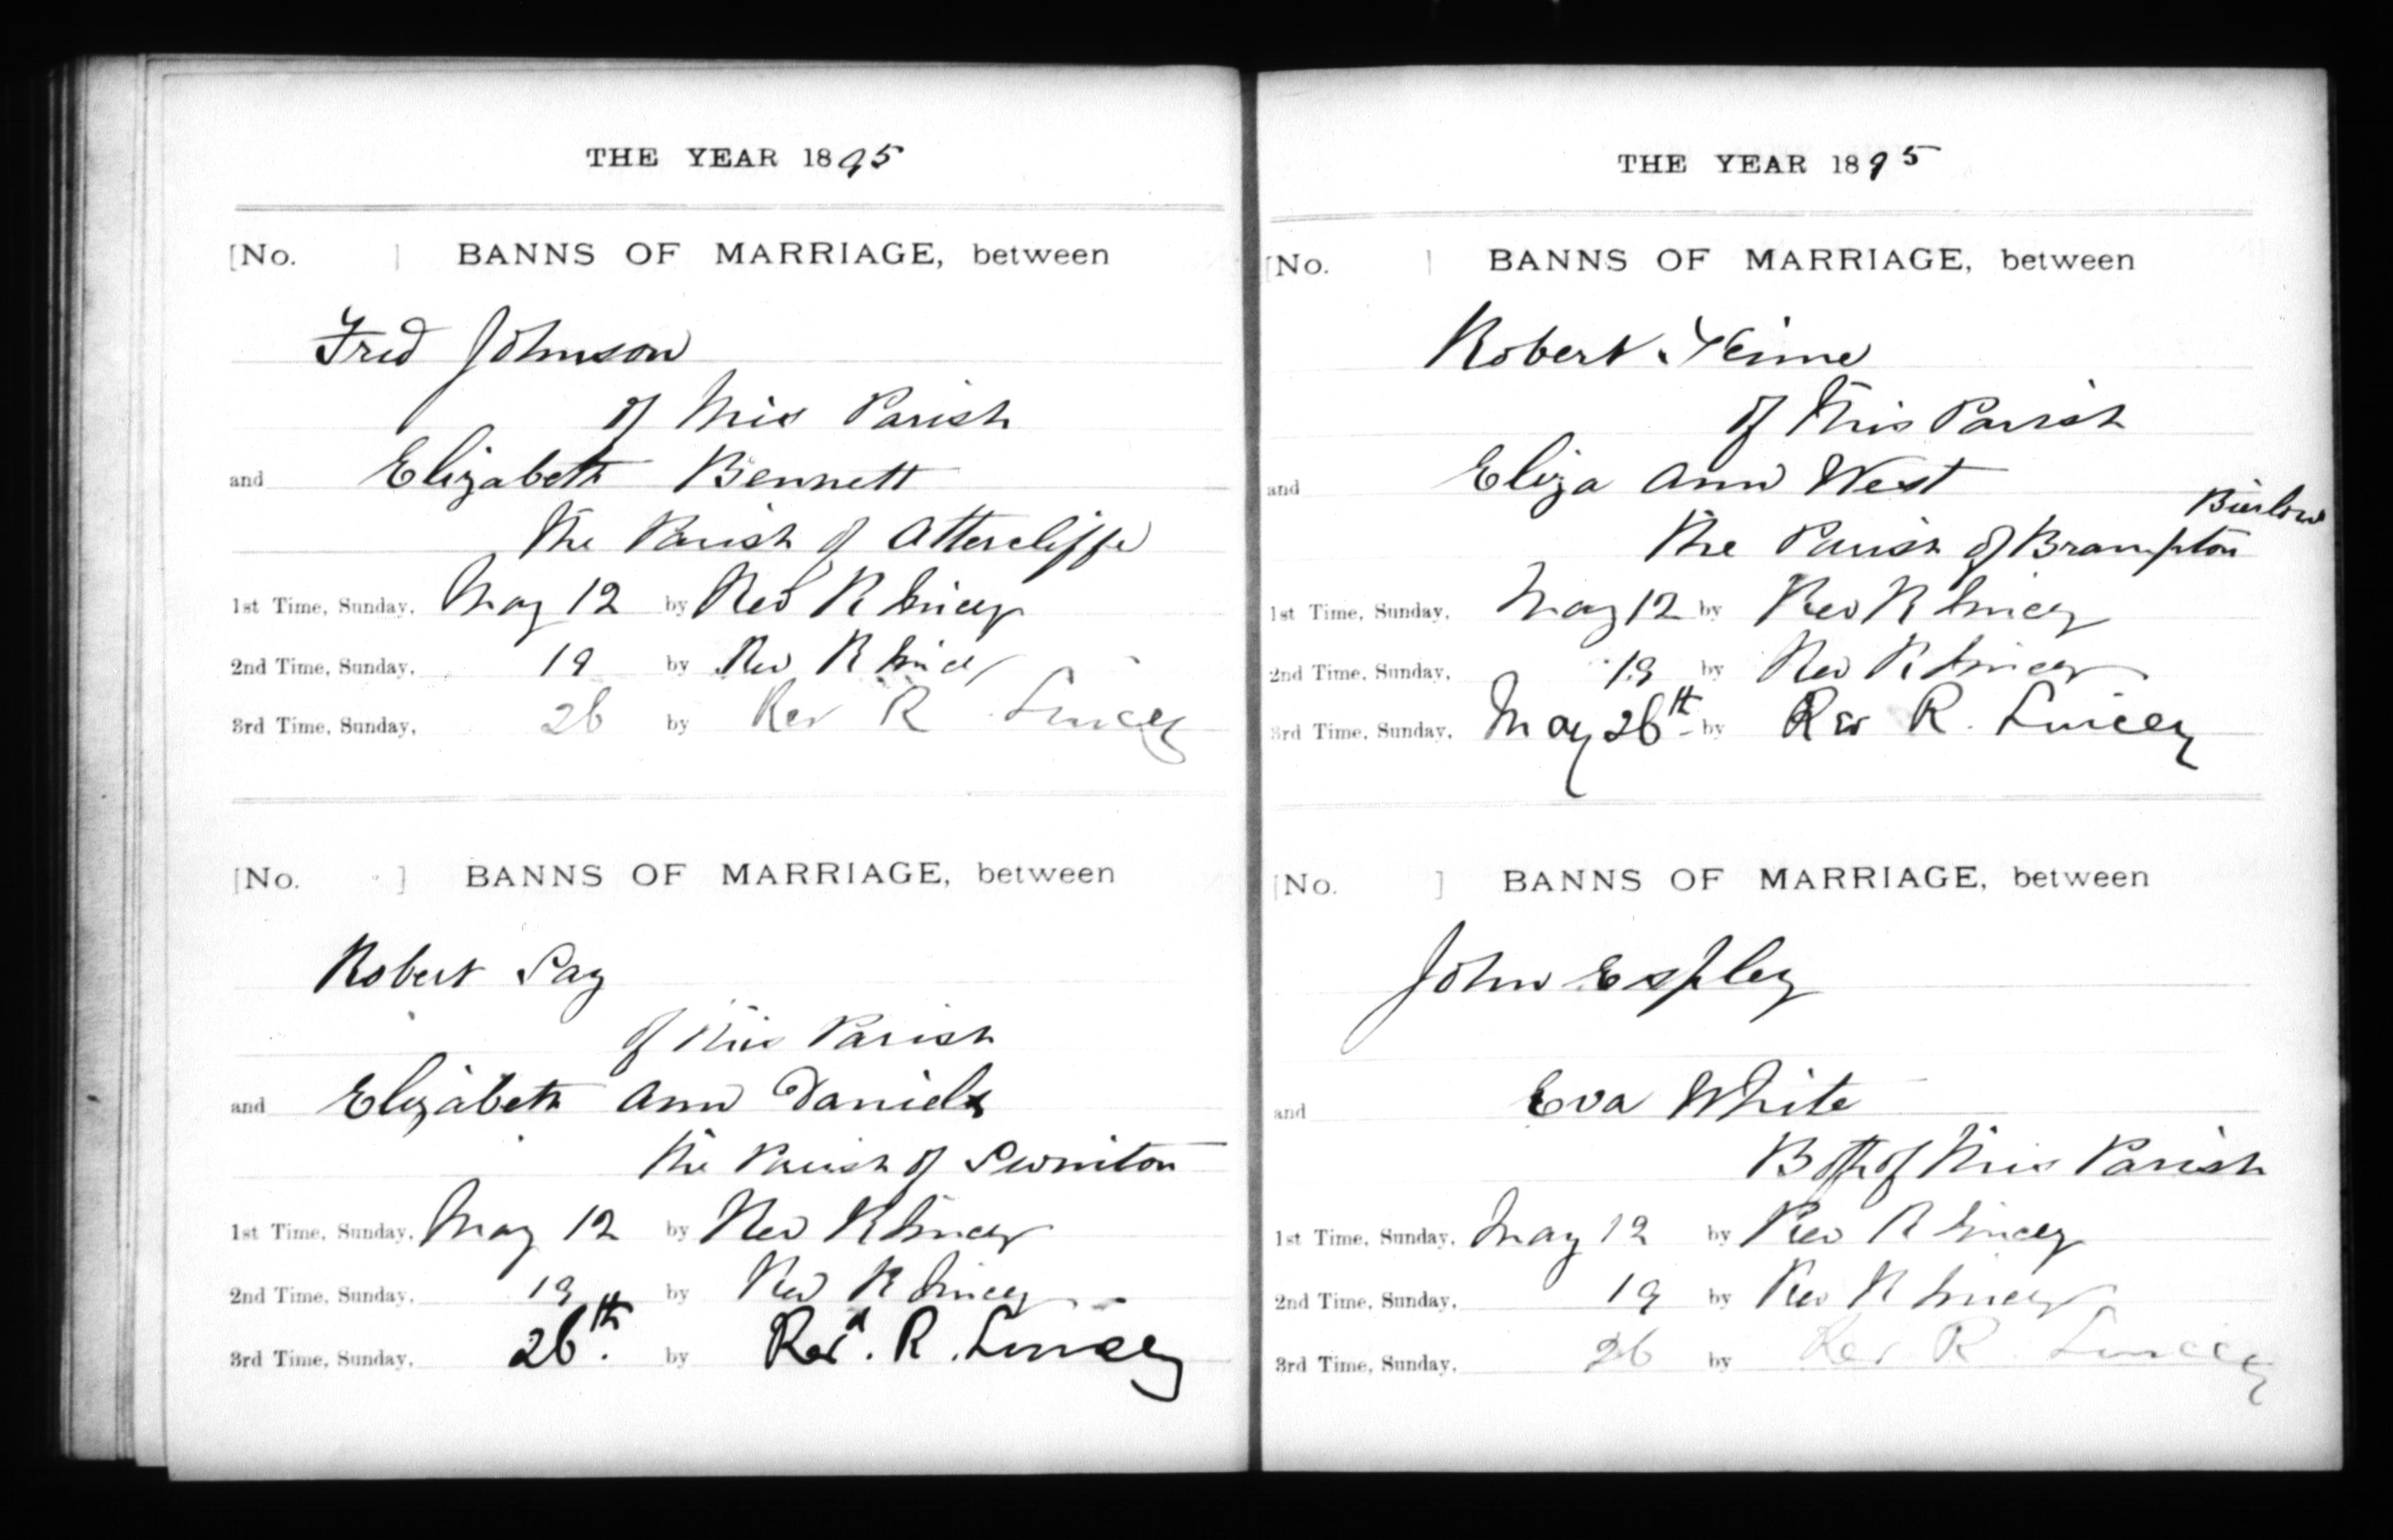 THE YEAR 1895
[No. ] BANNS OF MARRIAGE, between
Fred Johnson
of this Parish
and Elizabeth Bennett
the Parish of Attercliffe
1st Time, Sunday, May 12 by Rev R Lucey
2nd Time, Sunday, 19 by Rev R Lucey
3rd Time, Sunday, 26 by Rev R Lucey
[No. ] BANNS OF MARRIAGE, between
Robert Say
of this Parish
and Elizabeth Ann Daniels
the Parish of Swinton
1st Time, Sunday, May 12 by Rev R Lucey
2nd Time, Sunday, 19 by Rev R Lucey
3rd Time, Sunday, 26th. by Revd. R. Lucey
THE YEAR 1895
[No. ] BANNS OF MARRIAGE, between
Robert
of this Parish
and Eliza Ann West
Bierlow
the Parish of Brampton
1st Time, Sunday, May 12 by Rev R Lucey
2nd Time, Sunday, 19 by Rev R Lucey
3rd Time, Sunday, May 26th by Rev R. Lucey
[No. ] BANNS OF MARRIAGE, between
John Espley
and Eva White
Both of this Parish
1st Time, Sunday, May 12 by Rev R Lucey
2nd Time, Sunday, 19 by Rev R Lucey
3rd Time, Sunday, 26 by Rev R Lucey